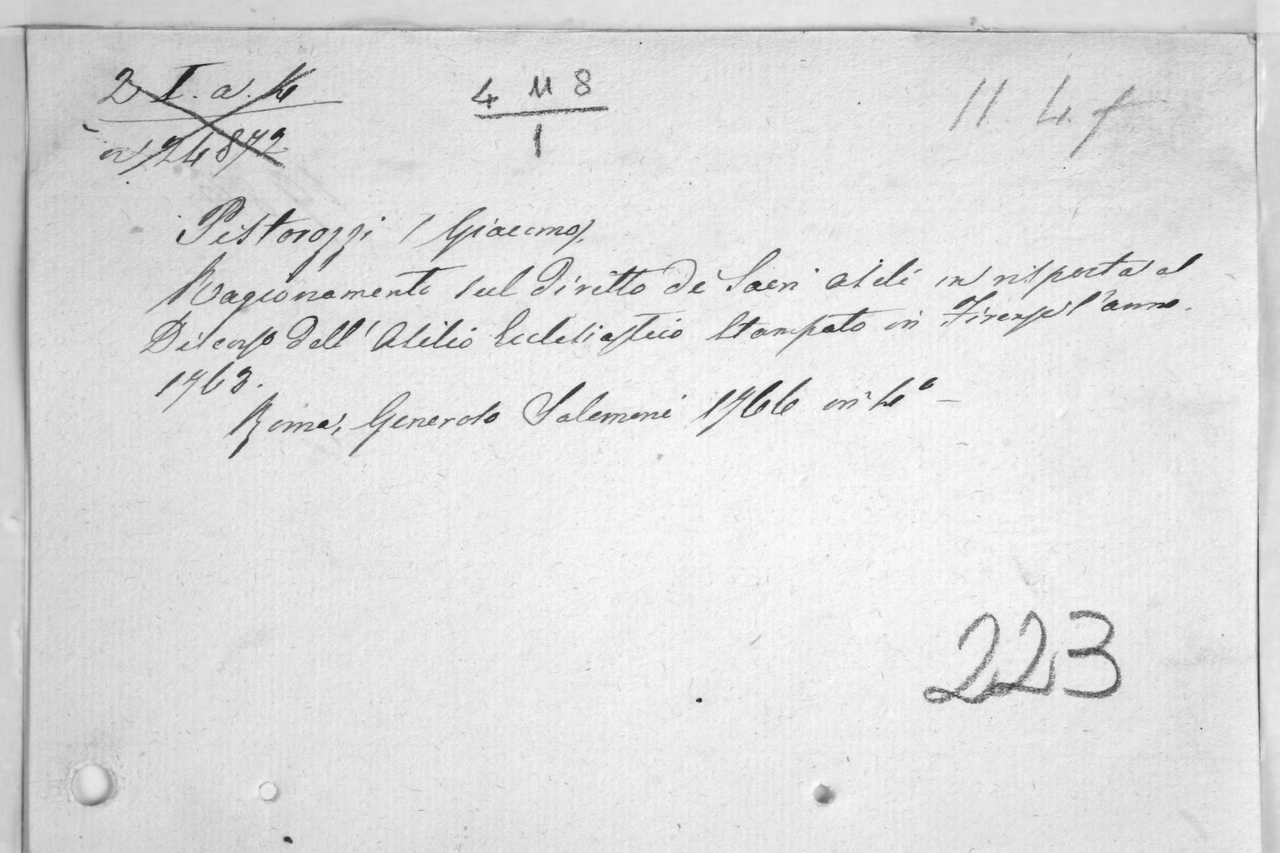 2 I. a. 4
4 M 8
1
11. 4. f
in 24872
Pistorozzi (Giacomo).
Ragionamento sul diritto de Sacri asili in risposta al
Discorso dell' Asilio Ecclesiastico Stampato in Firenze l'anno
1763.
Roma, Generoso Salomoni 1766 in 4°
223